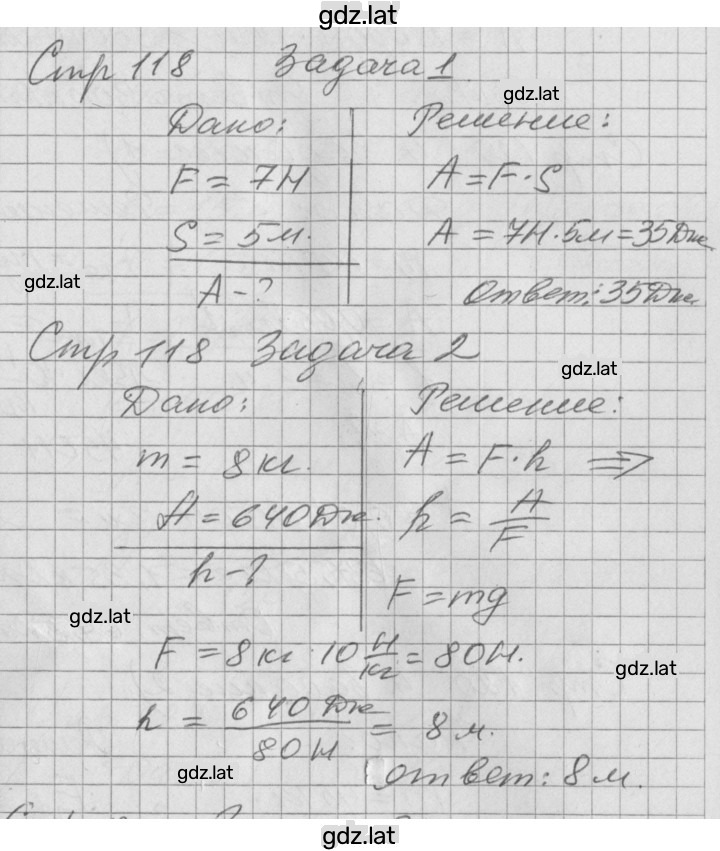 gdz.lat
Стр 118 Задача 1
gdz.lat
Дано: Решение:
F = 7Н A = F · S
S = 5м. A = 7Н · 5м = 35Дж
gdz.lat
A - ? Ответ: 35Дж.
Стр 118 Задача 2
gdz.lat
Дано: Решение:
m = 8кг. A = F · h ⇒
A = 640Дж. h = A/F
h - ?
F = mg
gdz.lat
F = 8кг · 10 Н/кг = 80Н.
gdz.lat
h = 640Дж/80Н = 8м.
gdz.lat
Ответ: 8м.
gdz.lat